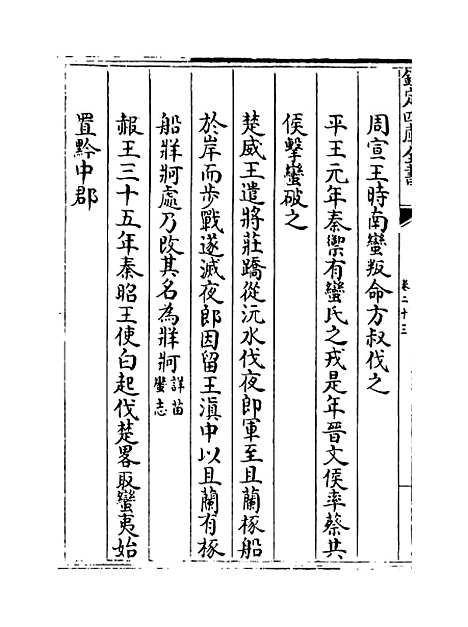 欽定四庫全書
卷二十三
周宣王時南蠻叛命方叔伐之
平王元年秦禦有蠻氏之戎是年晉文侯率蔡共
侯擊蠻破之
楚威王遣將莊蹻從沅水伐夜郎軍至且蘭椓船
於岸而歩戰遂滅夜郎因留王滇中以且蘭有椓
船牂牁處乃改其名為牂牁詳苗
蠻志
赧王三十五年秦昭王使白起伐楚畧取蠻夷始
置黔中郡